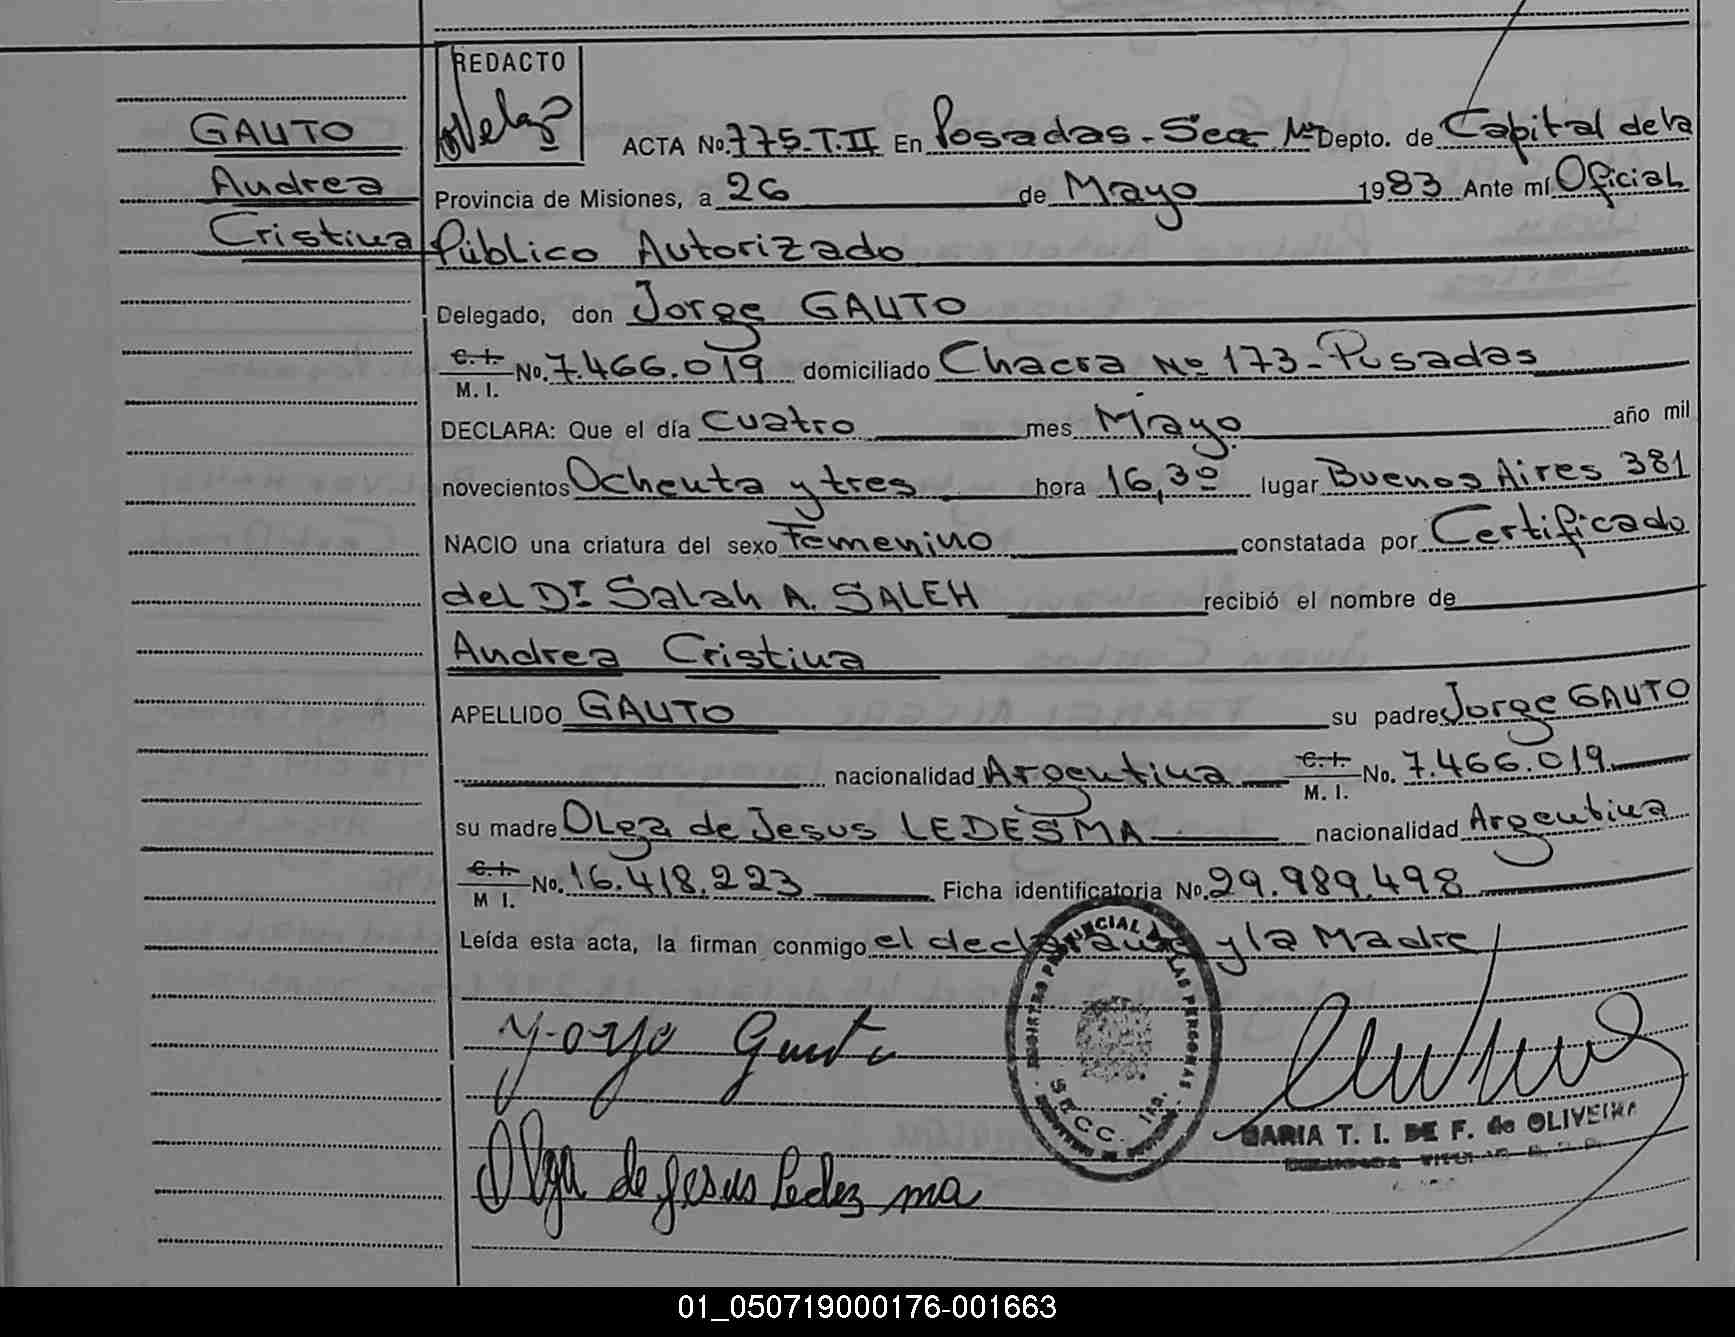 REDACTO
GAUTO
Andrea
Cristina
ACTA No. 775-T.II En Posadas - Sec. 1ª Depto. de Capital de la
Provincia de Misiones, a 26 de Mayo 1983 Ante mí Oficial
Público Autorizado
Delegado, don Jorge GAUTO
C. I.
M. I. No. 7.466.019 domiciliado Chacra Nº 173 - Posadas
DECLARA: Que el día Cuatro mes Mayo año mil
novecientos Ochenta y tres hora 16,30 lugar Buenos Aires 381
NACIO una criatura del sexo Femenino constatada por Certificado
del Dr. Salah A. SALEH recibió el nombre de
Andrea Cristina
APELLIDO GAUTO su padre Jorge GAUTO
nacionalidad Argentina C. I. M. I. No. 7.466.019
su madre Olga de Jesus LEDESMA nacionalidad Argentina
C. I. M I. No. 16.418.223 Ficha identificatoria No. 29.989.498
Leída esta acta, la firman conmigo el declarante y la Madre
REGISTRO PROVINCIAL DE LAS PERSONAS
Olga de Jesus Ledezma
MARIA T. I. DE F. de OLIVEIRA
01_050719000176-001663